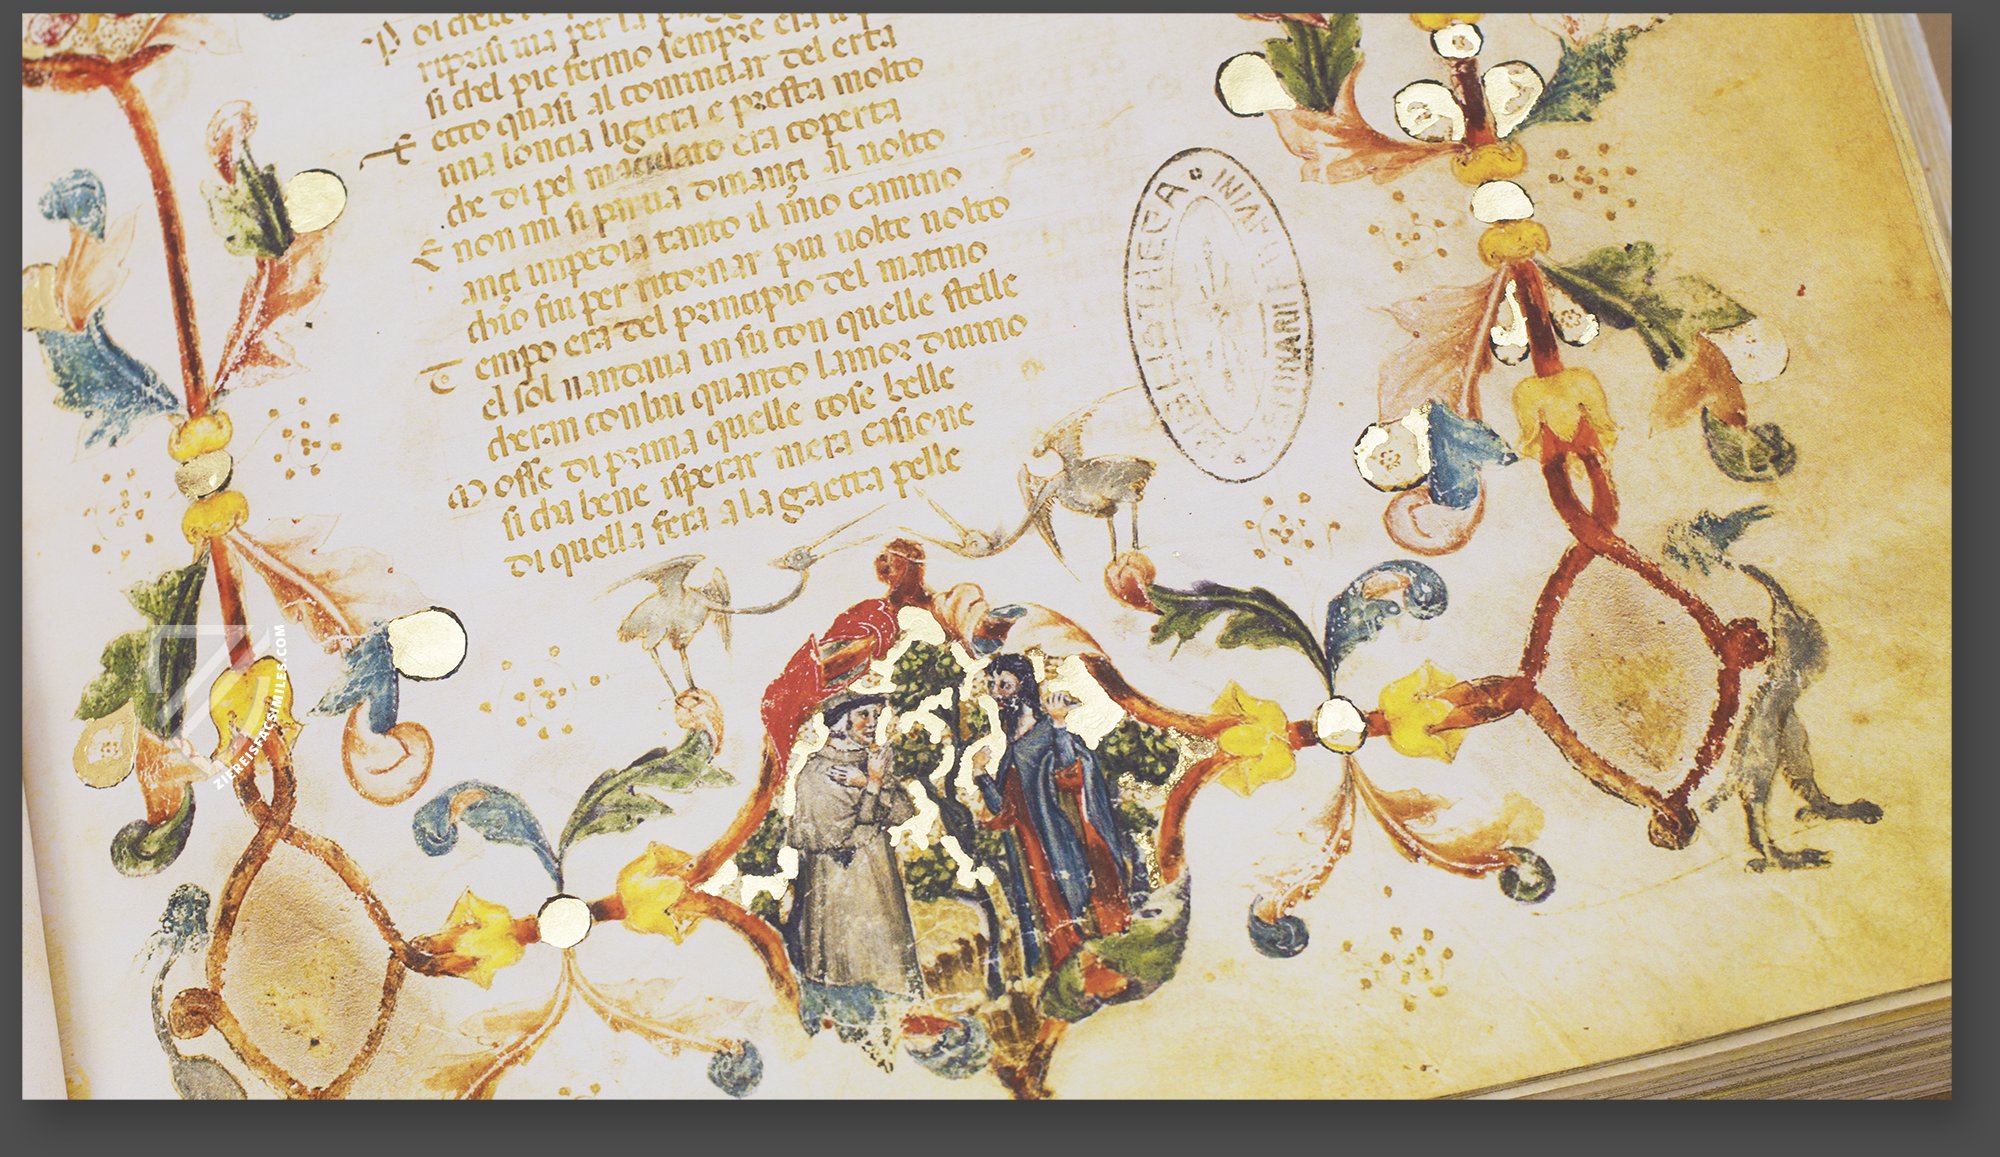 P oi chei
riprisi uia per la piaggia
si chel pie fermo sempre era il p
E cco quasi al cominciar del erta
una loncia ligiera e presta molto
che di pel maculato era coperta
E non mi si partia dinanci al uolto
anci impedia tanto il mio camino
chio fui per ritornar piu uolte uolto
T empo era del principio del matino
el sol montaua in su con quelle stelle
cheran con lui quando lamor diuino
M osse di prima quelle cose belle
si cha bene sperar mera casione
di quella fera a la gaetta pelle
BIBLIOTHECA
SEMINARII
ZIEREISFACSIMILES.COM